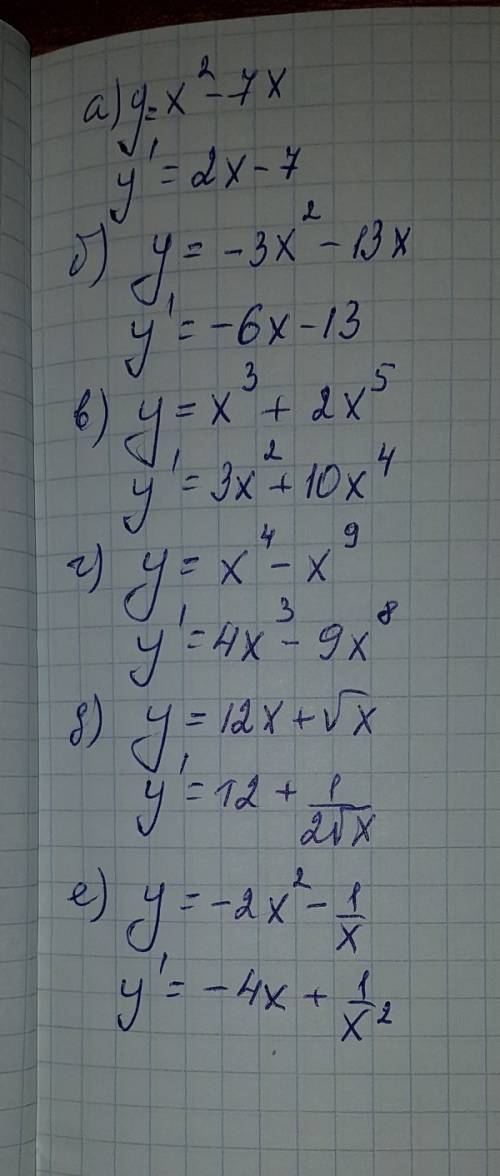 а) y = x² - 7x
y' = 2x - 7
б) y = -3x² - 13x
y' = -6x - 13
в) y = x³ + 2x⁵
y' = 3x² + 10x⁴
г) y = x⁴ - x⁹
y' = 4x³ - 9x⁸
д) y = 12x + √x
y' = 12 + 1/(2√x)
е) y = -2x² - 1/x
y' = -4x + 1/x²